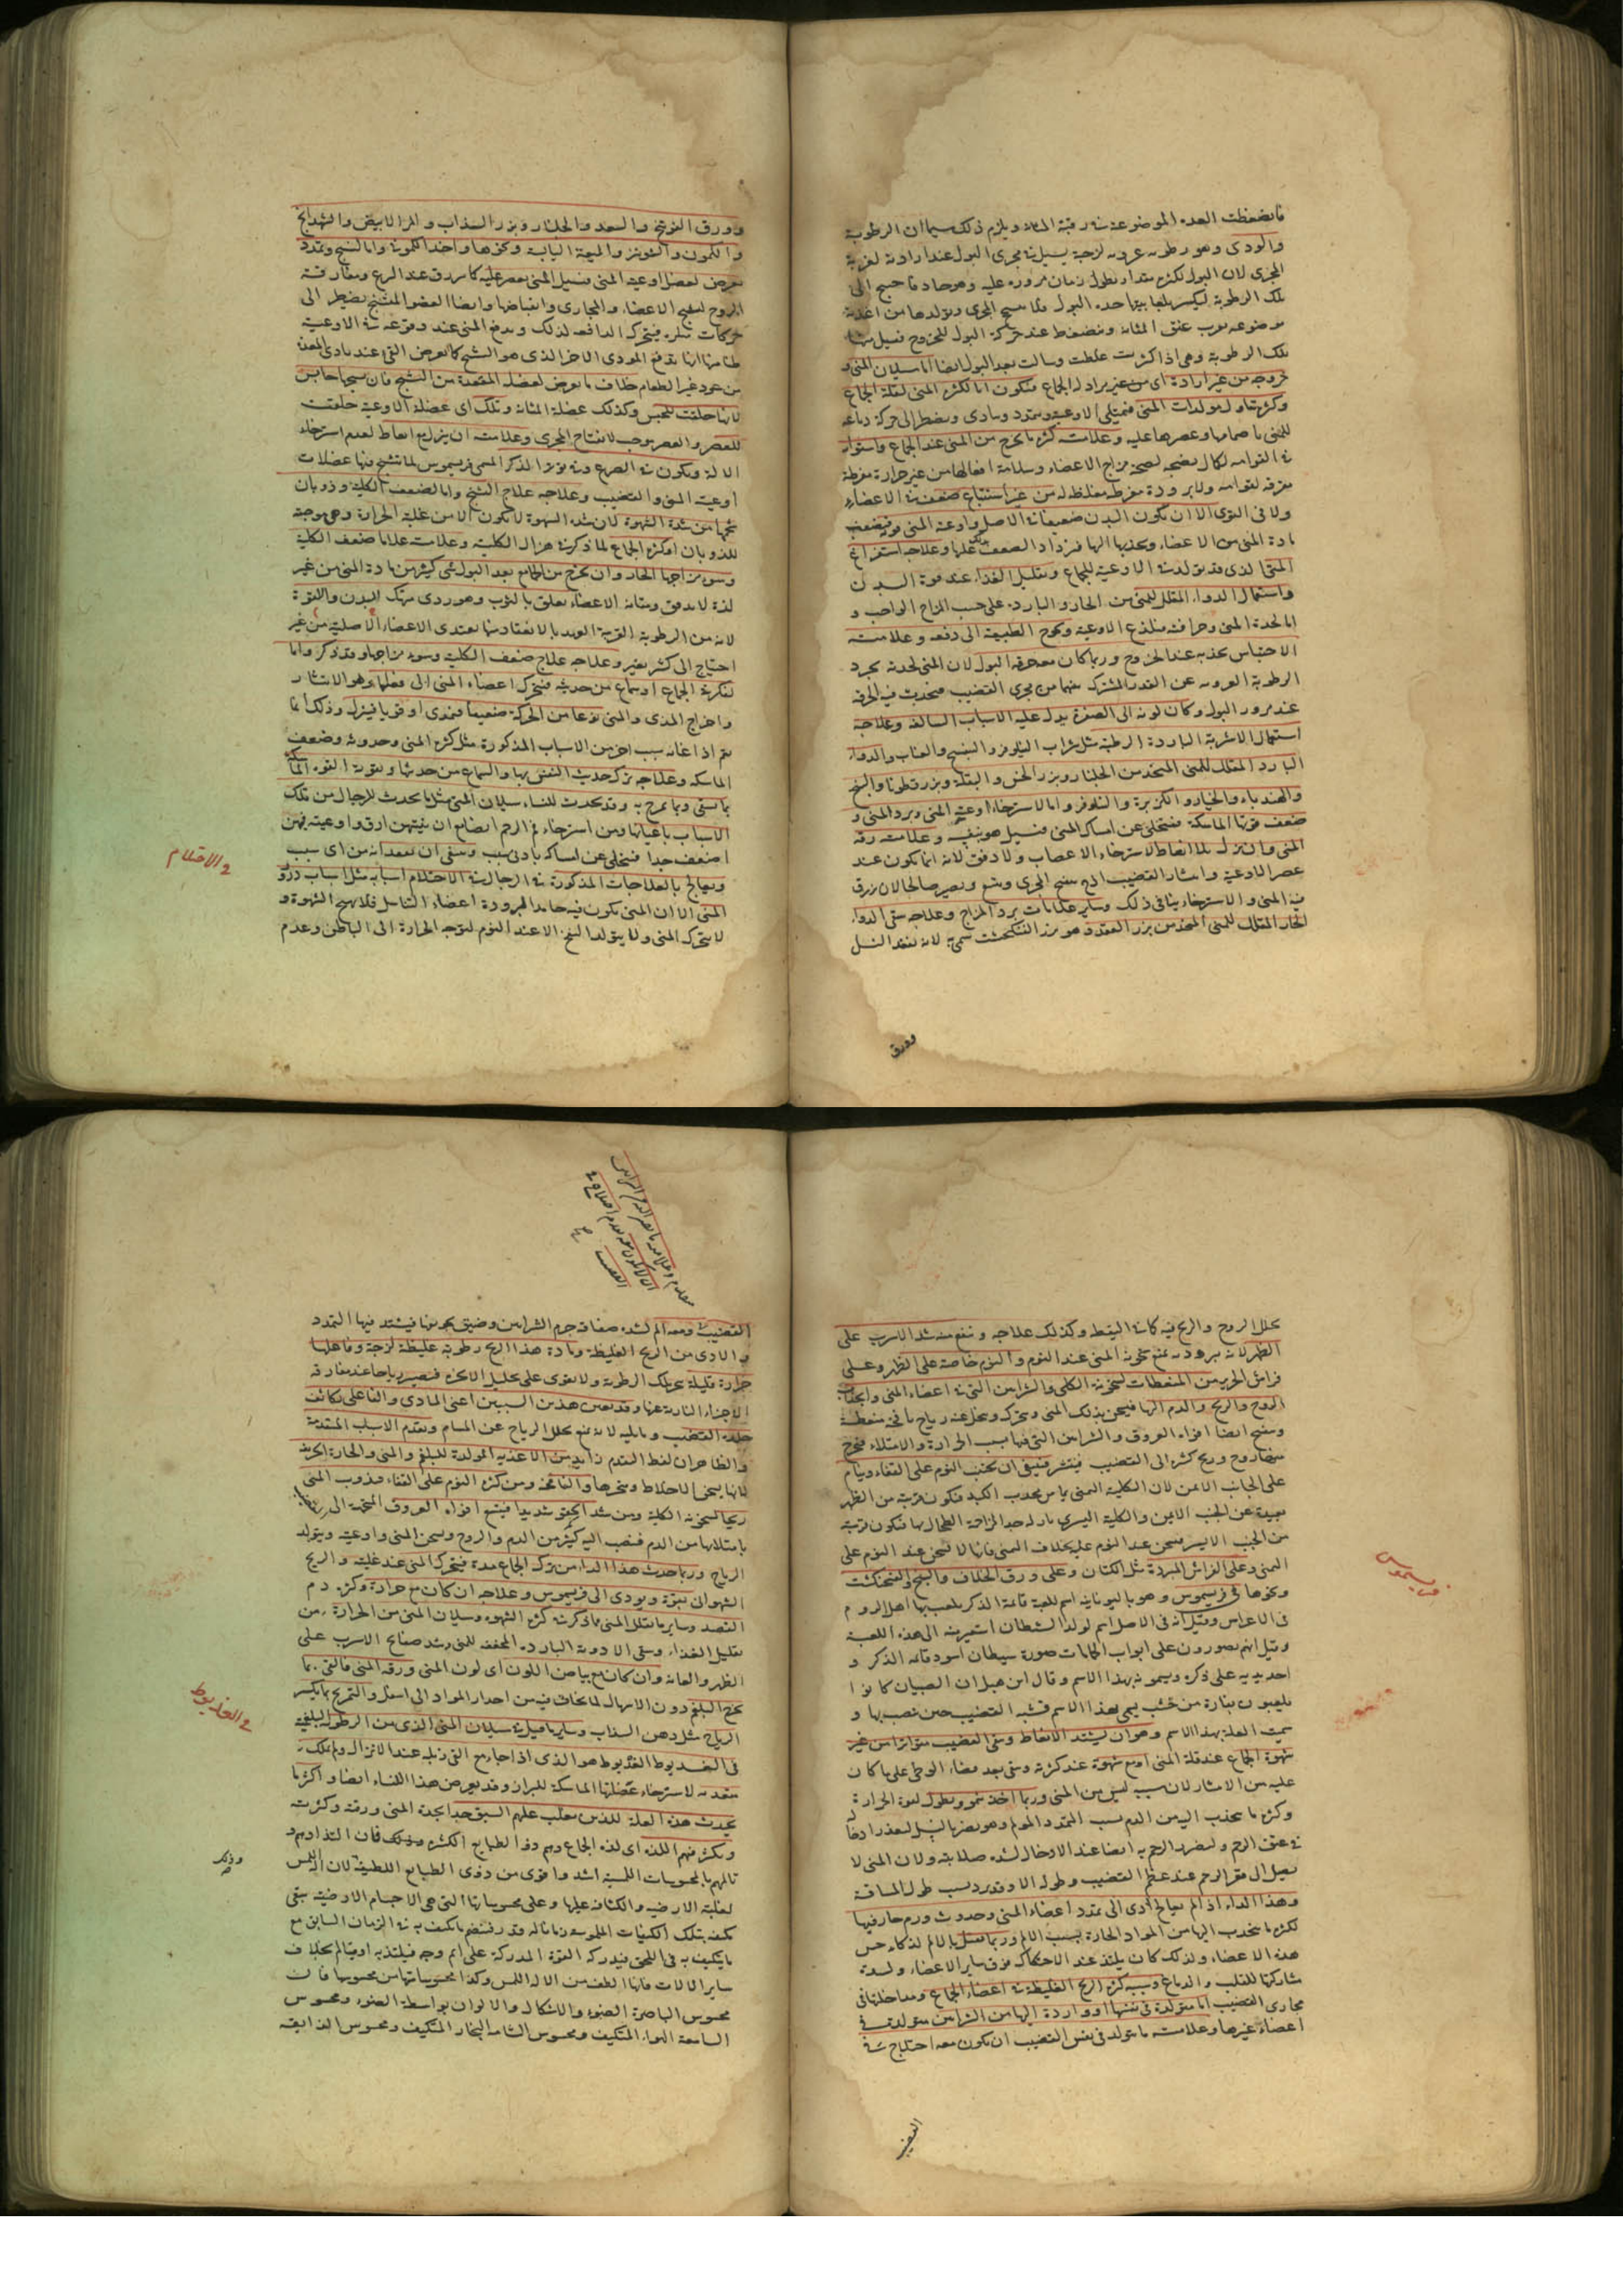 فانضغطت الغدد الموضوعة في رقبة المثانة ويلزم ذلك سيما ان الرطوبة
والودى وهو رطوبة غروية لزجة يسيل في مجرى البول عند ارادته لغرية
المجرى لان البول لكثرة مقداره بطول زمان مروره عليه وهو حاد فاحتيج الى
تلك الرطوبة ليكسر بلعابيتها حدة البول فلا يسحج المجرى وتولدها من اغدية
موضوعة بقرب عنق المثانة وتنضغط عند حركة البول للخروج فيسيل منها
تلك الرطوبة وهى اذا كثرت غلظت وسالت بعد البول ايضا اما سيلان المنى و
خروجه من غير ارادة اى من غير ارادة الجماع فيكون اما لكثرة المنى لقلة الجماع
وكثرة تناول مولدات المنى فتمتلى الاوعية وتتمدد وتتاذى ويضطر الى حركة دفاعة
للمنى بانضمامها وعصرها عليه وعلامته كثرة ما يخرج من المنى عند الجماع واستواء
فى القوام لكمال نضجه لصحة مزاج الاعضاء وسلامة افعالها من غير حرارة مفرطة
مرققة لقوامه ولا برودة مفرطة مغلظة له من غير استتباع ضعف فى الاعضاء
ولا فى القوى الا ان يكون البدن ضعيفا فى الاصل واوعية المنى قوية فيضعف
مادة المنى من الاعضاء وتجذبها اليها فيزداد الضعف وعلاجه استفراغ
المنى الذى قد تولد فى الاوعية بالجماع وتقليل الغذاء عند قوة البدن
واستعمال الدواء المقلل للمنى من الحار والبارد على حسب المزاج الواجب و
اما لحدة المنى وحرافته فيلذع الاوعية ويحوج الطبيعة الى دفعه وعلامته
الاحساس بحدته عند الخروج وربما كان معه حرقة البول لان المنى لحدته يجرد
الرطوبة الغروية عن القدر المشترك بينهما من مجرى القضيب فيحدث فيه الحرقة
عند مرور البول وكان لونه الى الصفرة يدل عليه الاسباب السالفة وعلاجه
استعمال الاشربة الباردة الرطبة مثل شراب النيلوفر والبنفسج والعناب والدواء
البارد المقلل للمنى المتخذ من الجلنار وبزر الخس والبقلة وبزرقطونا والبنج
والهندباء والخيار والكزبرة والنيلوفر واما لاسترخاء اوعية المنى وبرد المنى و
ضعف قوتها الماسكة فتتخلى عن امساك المنى فيسيل هو بنفسه وعلامته رقة
المنى وان ينزل بلا انعاظ لاسترخاء الاعصاب ولا دفق لانه انما يكون عند
عصر الاوعية وانتشار القضيب الذى يفتح المجرى ويتسع ويصير صالحا لان يزرق
فيه المنى والاسترخاء ينافى ذلك وساير علامات برد المزاج وعلاجه سقى الدواء
الحار المقلل للمنى المتخذ من بزر الفقد وهو بزر الفنجنكشت سمى به لانه يفقد النسل
وورق
وورق الفوتنج والسعد والجلنار وبزر السذاب والمر الابيض والشهدانج
والكمون والشونيز والميعة اليابسة ونحوها واخذ الكمونى واما لتشنج وتمدد
يعرض لعضل اوعية المنى فيسيل المنى بعصر عليه كما يبرق عند الصرع ومفارقة
الروح لتشنج الاعضاء والمجارى وانقباضها وايضا العضو المتشنج يضطر الى
حركات فيتحرك الدافعة لذلك ويدفع المنى عند وقوعه فى الاوعية
ظنا منها انها تدفع المؤذى الاخر الذى هو التشنج كما يعرض القى عند تاذى المعدة
من عود غير الطعام خلاف ما يعرض لعضلة المقعدة من التشنج فان تشنجها حابس
لانها خلقت للحبس وكذلك عضلة المثانة وتلك اى عضلة الاوعية خلقت
للعصر والعصر يوجب لانفتاح المجرى وعلامته ان ينزل مع انعاظ لعدم استرخاء
الالة ويكون فى الصرع وفى توتر الذكر المسمى فريسموس لما تتشنج فيها عضلات
اوعية المنى والقضيب وعلاجه علاج التشنج واما لضعف الكلية وذوبان
شحمها من شدة الشهوة لان شدة الشهوة لا يكون الا من غلبة الحرارة وهى موجبة
للذوبان او كثرة الجماع لما ذكر فى هزال الكلية وعلامته علامات ضعف الكلية
وسوء مزاجها الحار وان يخرج من الجماع بعد البول شى كثير من مادة المنى من غير
لذة لا يدفق ومتانة الاعضاء يعلق بالثوب وهو ردى ينهك البدن والقوة
لانه من الرطوبة القريبة العهد بالانعقاد منها يغتذى الاعضاء الاصلية من غير
احتياج الى كثير تغير وعلاجه علاج ضعف الكلية وسوء مزاجها وقد ذكر واما
لفكر فى الجماع او سماع من حديثه فيتحرك اعضاء المنى الى فعلها وهو الانتشار
واخراج المذى والمنى نوعا من الحركة ضعيفا فيمذى او قويا فينزل وذلك انما
يتم اذا عانه سبب اخر من الاسباب المذكورة مثل كثرة المنى وحدوثه وضعف
الماسكة وعلاجه ترك حديث النفس بها والسماع من حديثها وتقوية القوة الماسكة
بما يسقى وبما يمرخ به وقد يحدث للنساء سيلان المنى مثل ما يحدث للرجال من تلك
الاسباب باعيانها ومن استرخاء فم الرحم ايضا مع ان منيهن ارق واوعيته فيهن
اضعف جدا فيتخلى عن امساكه بادنى سبب وينبغى ان يتفقد انه من اى سبب
ويعالج بالعلاجات المذكورة فى الرجال فى الاحتلام اسبابه مثل اسباب درور
المنى الا ان المنى يكون فيه جامدا لبرودة اعضاء التناسل فلا يهيج الشهوة و
لا يتحرك المنى ولا يتولد النفخ الا عند النوم لتوجه الحرارة الى الباطن وعدم
فى الاحتلام
تحلل الروح والريح فيه كما فى اليقظة وكذلك علاجه وينفع منه شد الاسرب على
الظهر لانه ببرودته يمنع سخونة المنى عند النوم والنوم خاصة على الظهر وعلى
فراش الحرير من المنعظات لسخونة الكلى والشرايين التى فى اعضاء المنى وانجذاب
الروح والريح والدم اليها فيسخن بذلك المنى ويتحرك ويتحلل عنه رياح نافخة منعظة
وينفتح ايضا افواه العروق والشرايين التى فيها بسبب الحرارة والامتلاء فيخرج
منها روح وريح كثيرة الى القضيب فينتشر فينبغى ان يجتنب النوم على القفاء وينام
على الجانب الايمن لان الكلية اليمنى تماس محدب الكبد فيكون قريبة من الظهر
بعيدة عن الجنب الايمن والكلية اليسرى نازلة جدا لمزاحمة الطحال لها فيكون قريبة
من الجنب الايسر فيسخن عند النوم عليه بخلاف اليمنى فانها لا تسخن عند النوم على
اليمنى وعلى الفراش المبردة مثل الكتان وعلى ورق الخلاف والبنج والفنجنكشت
ونحوها فى فريسموس وهو باليونانية اسم للعبة قائمة الذكر يلعب بها اهل الروم
فى الاعراس وقيل انه فى الاصل اسم لولد الشيطان استعير منه الى هذه اللعبة
وقيل انهم يصورون على ابواب الحمامات صورة شيطان اسود قائمة الذكر و
احدى يديه على ذكره ويسمونه بهذا الاسم وقال ابن هبل ان الصبيان كانوا
يلعبون بمنارة من خشب يسمى بهذا الاسم فشبه القضيب حين نصب بها و
سميت العلة بهذا الاسم وهو ان يشتد الانعاظ ويبقى القضيب متوترا من غير
شهوة الجماع عند قلة المنى او مع شهوة عند كثرته ويبقى بعد قضاء الوطر على ما كان
عليه من الانتشار لان سببه ليس من المنى وربما اخذ ينمو ويطول لقوة الحرارة
وكثرة ما يجذب اليه من الدم بسبب التمدد المؤلم وهو يضر بالنسل لتعذر ادخاله
فى عنق الرحم ولتضرر الرحم به ايضا عند الادخال لشدة صلابته ولان المنى لا
يصل الى قعر الرحم عند عظم القضيب وطوله الا وقد برد بسبب طول المسافة
وهذا الداء اذا لم يعالج ادى الى تمدد اعضاء المنى وحدوث ورم حار فيها
لكثرة ما ينجذب اليها من المواد الحارة بسبب الالم وربما قتل بالالم لذكاء حس
هذه الاعضاء ولذلك كان يلتذ عند الاحتكاك فوق ساير الاعضاء ولشدة
مشاركتها للقلب والدماغ وسببه كثرة الريح الغليظة فى اعضاء الجماع ومداخلتها فى
مجارى القضيب اما متولدة فى نفسها او واردة اليها من الشرايين متولدة فى
اعضاء غيرها وعلامته ما يتولد فى نفس القضيب ان يكون معه اختلاج فى
فريسموس
القضيب
القضيب ومعه الم لشدة صفاقة جرم الشرايين وضيق تجويفها فيشتد فيها التمدد
والاذى من الريح الغليظة ومادة هذا الريح رطوبة غليظة لزجة وفاعلها
حرارة قليلة تحرك تلك الرطوبة ولا تقوى على تحليل الابخرة فتصير رياحا عند مفارقة
الاجزاء النارية عنها وقد يعين هذين السببين اعنى المادى والفاعلى تكاثف
جلدة القضيب وما يليه لانه يمنع تحلل الرياح عن المسام وتقدم الاسباب المتقدمة
والظاهر ان لفظ التقدم زايد من الاغذية المولدة للبلغم والمنى والحارة الحريفة
لانها يسخن الاخلاط وتبخرها والنافخة ومن كثرة النوم على القفاء فيذوب المنى
ريحا لسخونة الكلية ومن شد الحقو شديدا فيتسع افواه العروق المتجهة الى القضيب
بامتلائها من الدم فينصب اليه كثير من الدم والروح ويسخن المنى واوعيته ويتولد
الرياح وربما حدث هذا الداء من ترك الجماع مدة فيتحرك المنى عند غلبته والريح
الشهوانى بقوة ويؤدى الى فريسموس وعلاجه ان كان مع حرارة وكثرة دم
الفصد وساير ما يقلل المنى مما ذكر فى كثرة الشهوة وسيلان المنى من الحرارة من
تقليل الغذاء وسقى الادوية الباردة المجففة للمنى وشد صفائح الاسرب على
الظهر والعانة وان كان مع بياض اللون اى لون المنى ورقة المنى فالقى بما
يخرج البلغم دون الاسهال لما يخاف فيه من احدار المواد الى اسفل والتمريخ بما يكسر
الرياح مثل دهن السذاب وساير ما قيل فى سيلان المنى الذى من الرطوبة البلغمية
فى العذيوط العذيوط هو الذى اذا جامع القى زبله عند الانزال ولم يملك
مقعدته لاسترخاء عضلتها الماسكة للبراز وقد يعرض هذا للنساء ايضا واكثر ما
يحدث هذه العلة للذين يغلب عليهم الشبق جدا لحدة المنى ورقته وكثرته
ويكثر فيهم اللذة اى لذة الجماع وهم ذووا الطبايع الكثيفة فان التذاذهم و
تالمهم بالمحسوسات اللمسية اشد واقوى من ذوى الطبايع اللطيفة لان اللمس
لغلبة الارضية والكثافة عليها وعلى محسوساتها التى هى الاجسام الارضية يبقى
تكيفه بتلك الكيفيات الملموسة زمانا له قدر فينضم ما تكيف به فى الزمان السابق مع
ما يتكيف به فى اللاحق فيدركه القوة المدركة على اتم وجه فيلتذ به او يتالم بخلاف
ساير الالات فانها الطف من الة اللمس وكذا محسوساتها من محسوسها فان
محسوس الباصرة الضوء والاشكال والالوان بواسطة الضوء ومحسوس
السامعة الهواء المتكيف ومحسوس الشامة البخار المتكيف ومحسوس الذائقة
فى العذيوط
وذلك